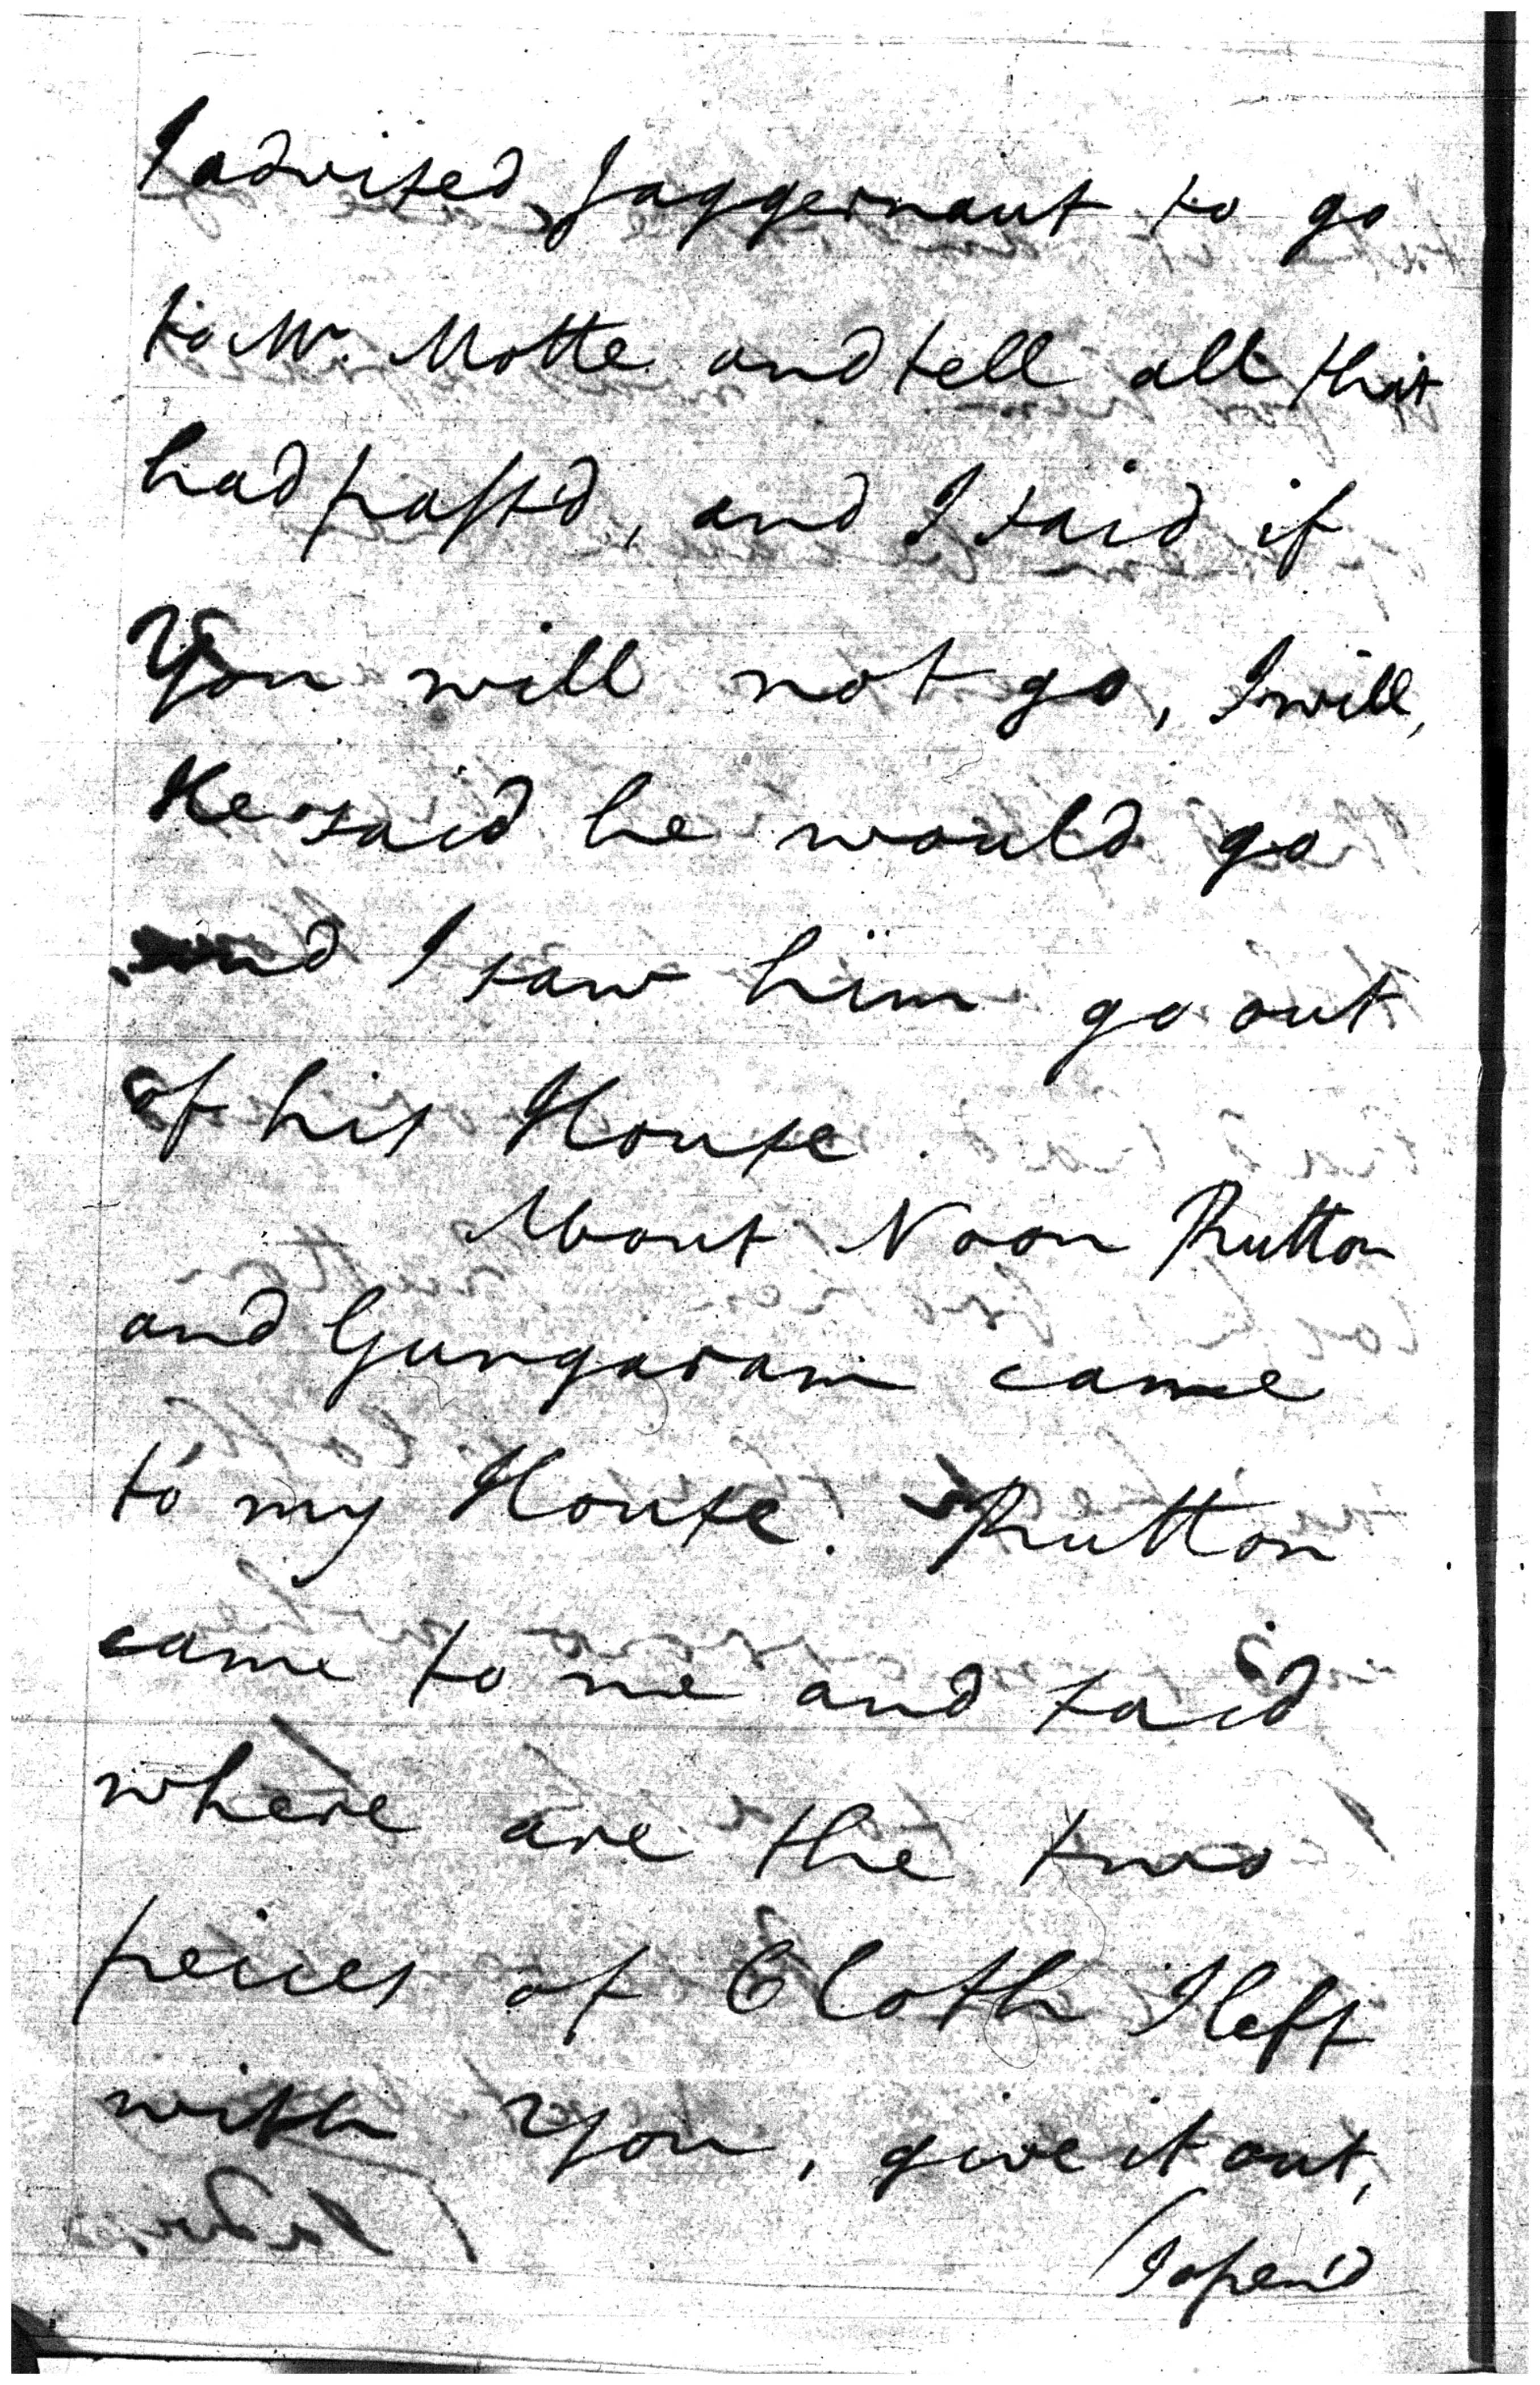 I advised Jaggernaut to go
to Mr. Motte and tell all that
had passd, and I said if
You will not go, I will,
He said he would go
and I saw him go out
of his House.
About Noon Rutton
and Gungaram came
to my House. Rutton
came to me and said
where are the two
peices of Cloth I left
with You, give it out,
(I open'd